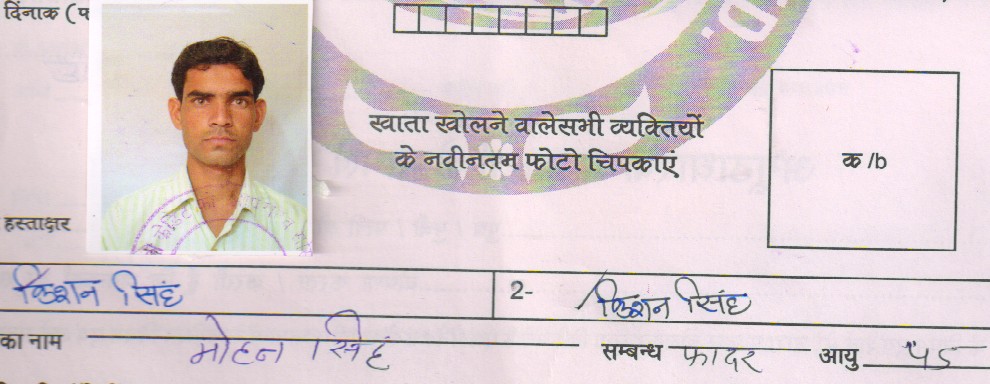 दिनांक (प
खाता खोलने वालेसभी व्यक्तियों
के नवीनतम फोटो चिपकाएं
क /b
हस्ताक्षर
किशन सिंह
2- किशन सिंह
का नाम मोहन सिंह सम्बन्ध फादर आयु 45